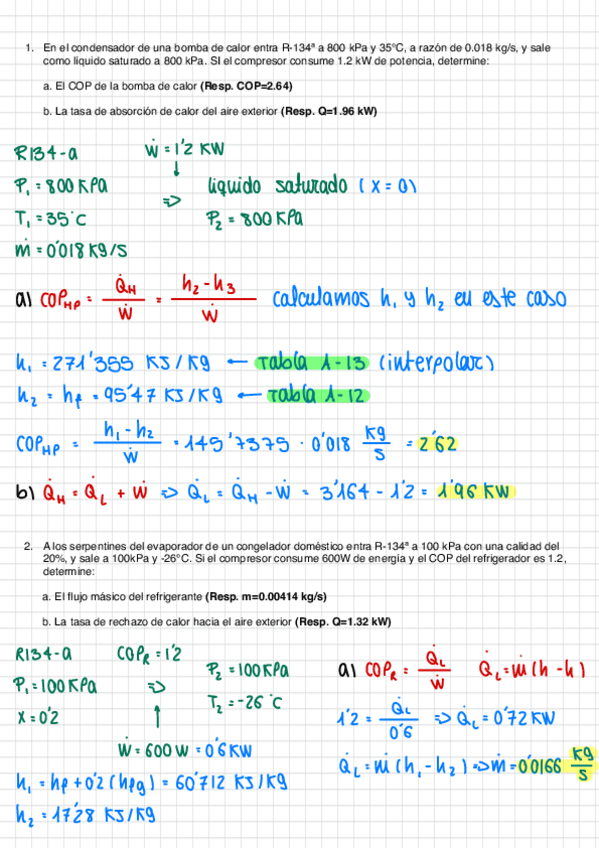 1. En el condensador de una bomba de calor entra R-134ª a 800 kPa y 35°C, a razón de 0.018 kg/s, y sale
como líquido saturado a 800 kPa. SI el compresor consume 1.2 kW de potencia, determine:
a. El COP de la bomba de calor (Resp. COP=2.64)
b. La tasa de absorción de calor del aire exterior (Resp. Q=1.96 kW)
R134-a Ẇ = 1'2 KW
P₁ = 800 KPa ↓ liquido saturado (x = 0)
T₁ = 35°C => P₂ = 800 KPa
ṁ = 0'018 KG/S
a) COP_HP = Q̇_H / Ẇ = h₂ - h₃ / Ẇ calculamos h₁ y h₂ en este caso
h₁ = 271'355 KJ/Kg ← Tabla A-13 (interpolar)
h₂ = hf = 95'47 KJ/Kg ← Tabla A-12
COP_HP = h₁ - h₂ / Ẇ = 145'7375 · 0'018 Kg/s = 2'62
b) Q̇_H = Q̇_L + Ẇ => Q̇_L = Q̇_H - Ẇ = 3'164 - 1'2 = 1'96 KW
2. A los serpentines del evaporador de un congelador doméstico entra R-134ª a 100 kPa con una calidad del
20%, y sale a 100kPa y -26°C. Si el compresor consume 600W de energía y el COP del refrigerador es 1.2,
determine:
a. El flujo másico del refrigerante (Resp. m=0.00414 kg/s)
b. La tasa de rechazo de calor hacia el aire exterior (Resp. Q=1.32 kW)
R134-a COP_R = 1'2
P₁ = 100 KPa => P₂ = 100 KPa
x = 0'2 ↑ T₂ = -26°C
Ẇ = 600 W = 0'6 KW
h₁ = hf + 0'2 (hfg) = 60'712 KJ/Kg
h₂ = 17'28 KJ/Kg
a) COP_R = Q̇_L / Ẇ Q̇_L = ṁ (h - h)
1'2 = Q̇_L / 0'6 => Q̇_L = 0'72 KW
Q̇_L = ṁ (h₁ - h₂) => ṁ = 0'0166 Kg/s